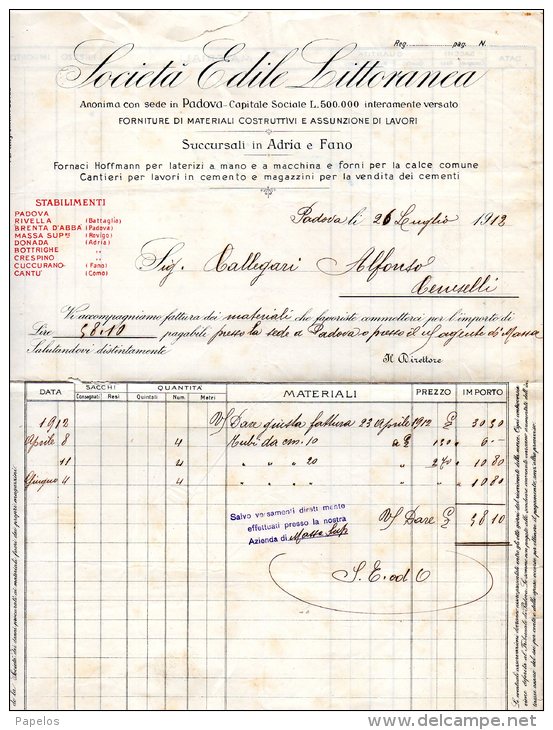 Reg. pag. N.
Società Edile Littoranea
Anonima con sede in Padova - Capitale Sociale L. 500.000 interamente versato
FORNITURE DI MATERIALI COSTRUTTIVI E ASSUNZIONE DI LAVORI
Succursali in Adria e Fano
Fornaci Hoffmann per laterizi a mano e a macchina e forni per la calce comune
Cantieri per lavori in cemento e magazzini per la vendita dei cementi
STABILIMENTI
PADOVA
RIVELLA (Battaglia)
BRENTA D'ABBÀ (Padova)
MASSA SUPre (Rovigo)
DONADA (Adria)
BOTTRIGHE "
CRESPINO "
CUCCURANO- (Fano)
CANTÙ (Como)
Padova li 26 Luglio 1912
Sig. Callegari Alfonso
Ceneselli
Vi accompagniamo fattura dei materiali che faceste commetterci per l'importo di
Lire 58.10 pagabili presso la sede di Padova o presso il ns/ agente di Massa
Salutandovi distintamente
Il Direttore
DATA SACCHI QUANTITÀ MATERIALI PREZZO IMPORTO
Consegnati Resi Quintali Num. Metri
1912 Vs/ Dare giusta fattura 23 Aprile 1912 £ 30 30
Aprile 8 4 Tubi da cm. 10 a £ 1 50 6 --
" 11 4 " " " 20 " 2 70 10 80
Giugno 4 4 " " " " " 10 80
Salvo versamenti direttamente
effettuati presso la nostra
Azienda di Massa Sup.
Vs/ Dare £ 58 10
S. E. od O
Papelos
delcampe.net